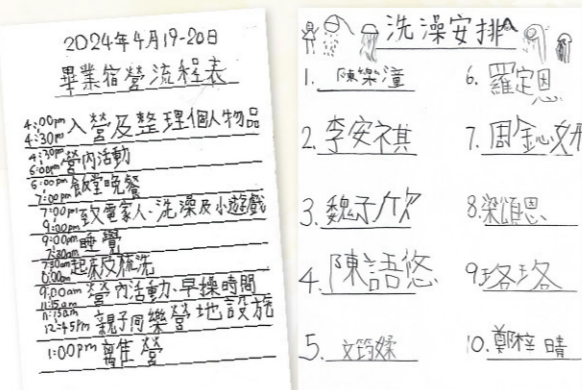 2024年4月19-20日
畢業宿營流程表
4:00pm
4:30pm 入營及整理個人物品
4:30pm
6:00pm 營內活動
6:00pm
7:00pm 飯堂晚餐
7:00pm
9:00pm 致電家人、洗澡及小遊戲
9:00pm
7:30am 睡覺
7:30am
起來及梳洗
9:00am
11:15am 營內活動、早操時間
11:15am
12:45pm 親子同樂營地設施
1:00pm 離營
洗澡安排
1. 陳樂潼
2. 李安祺
3. 魏子欣
4. 陳語悠
5. 文筠媃
6. 羅定恩
7. 周金
8. 梁頌恩
9. 珞珞
10. 鄭梓晴